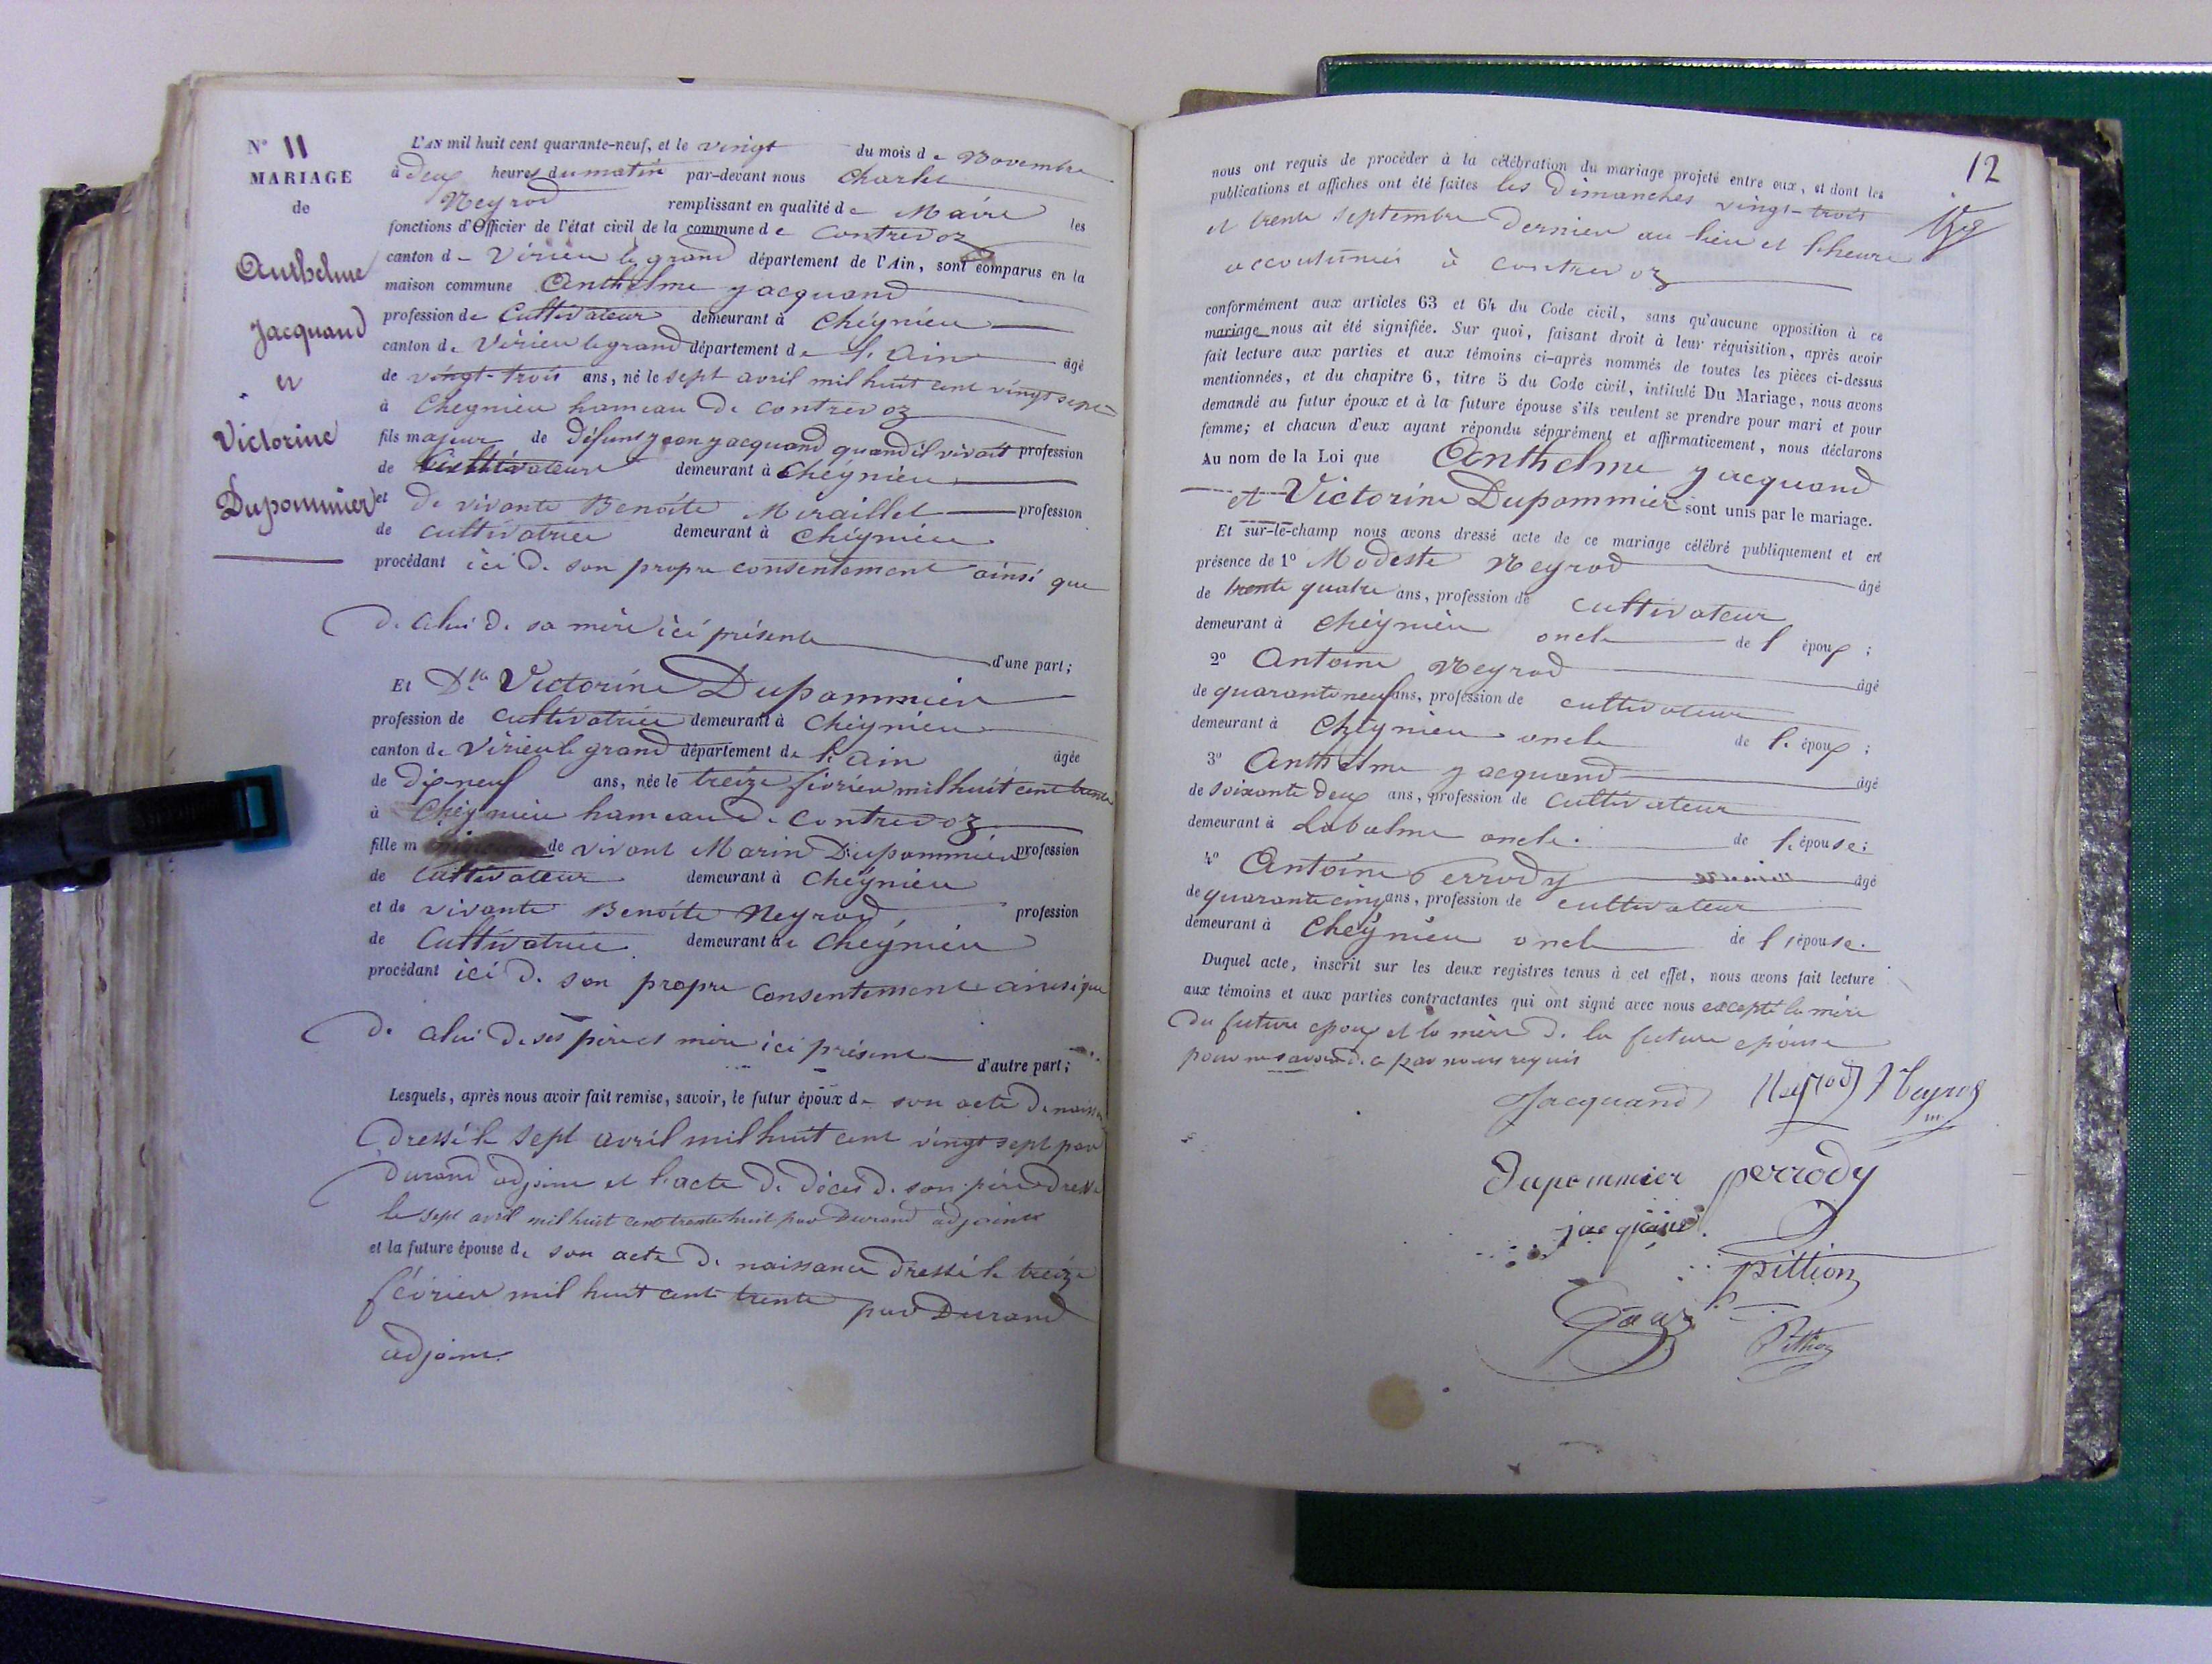 N° 11
MARIAGE
de
Anthelme
Jacquand
et
Victorine
Dupommier
L'AN mil huit cent quarante-neuf, et le vingt du mois de Novembre
à deux heures du matin par-devant nous Charles
Neyrod remplissant en qualité de Maire les
fonctions d'Officier de l'état civil de la commune de Contrevoz
canton de Virieu le grand département de l'Ain, sont comparus en la
maison commune Anthelme Jacquand
profession de Cultivateur demeurant à Cheignieu
canton de Virieu le grand département de l'Ain âgé
de vingt-trois ans, né le sept avril mil huit cent vingt sept
à Cheignieu hameau de Contrevoz
fils majeur de défunt Jacquand quand il vivait profession
de Cultivateur demeurant à Cheignieu
et de vivante Benoite Miraillet profession
de cultivatrice demeurant à Cheignieu
procédant ici de son propre consentement ainsi que
de celui de sa mère ici présente
d'une part;
Et Dlle Victorine Dupommier
profession de cultivatrice demeurant à Cheignieu
canton de Virieu le grand département de l'Ain âgée
de dix-neuf ans, née le treize février mil huit cent trente
à Cheignieu hameau de Contrevoz
fille m de vivant Marin Dupommier profession
de Cultivateur demeurant à Cheignieu
et de vivante Benoite Neyrod profession
de Cultivatrice demeurant à Cheignieu
procédant ici de son propre consentement ainsi que
de celui de ses père et mère ici présent
d'autre part;
Lesquels, après nous avoir fait remise, savoir, le futur époux de son acte de naiss
dressé le sept avril mil huit cent vingt sept par
Durand adjoint et l'acte de décès de son père dressé
le sept avril mil huit cent trente huit par Durand adjoint
et la future épouse de son acte de naissance dressé le treize
février mil huit cent trente par Durand
adjoint.
12
nous ont requis de procéder à la célébration du mariage projeté entre eux, et dont les
publications et affiches ont été faites les Dimanches vingt-trois
et trente septembre dernier au lieu et l'heure
accoutumés à Contrevoz
conformément aux articles 63 et 64 du Code civil, sans qu'aucune opposition à ce
mariage nous ait été signifiée. Sur quoi, faisant droit à leur réquisition, après avoir
fait lecture aux parties et aux témoins ci-après nommés de toutes les pièces ci-dessus
mentionnées, et du chapitre 6, titre 5 du Code civil, intitulé Du Mariage, nous avons
demandé au futur époux et à la future épouse s'ils veulent se prendre pour mari et pour
femme; et chacun d'eux ayant répondu séparément et affirmativement, nous déclarons
Au nom de la Loi que Anthelme Jacquand
et Victorine Dupommier sont unis par le mariage.
Et sur-le-champ nous avons dressé acte de ce mariage célébré publiquement et en
présence de 1° Modeste Neyrod âgé
de trente quatre ans, profession de cultivateur
demeurant à Cheignieu oncle de l'époux;
2° Antoine Neyrod âgé
de quarante neuf ans, profession de cultivateur
demeurant à Cheignieu oncle de l'époux;
3° Anthelme Jacquand âgé
de soixante deux ans, profession de Cultivateur
demeurant à Labalme oncle de l'épouse;
4° Antoine Perrody âgé
de quarante cinq ans, profession de cultivateur
demeurant à Cheignieu oncle de l'épouse.
Duquel acte, inscrit sur les deux registres tenus à cet effet, nous avons fait lecture
aux témoins et aux parties contractantes qui ont signé avec nous excepté la mère
du futur époux et la mère de la future épouse
pour ne savoir de ce par nous requis
Jacquand Neyrod Neyrod
Dupommier perrody
jacquand
pittion
Pittion